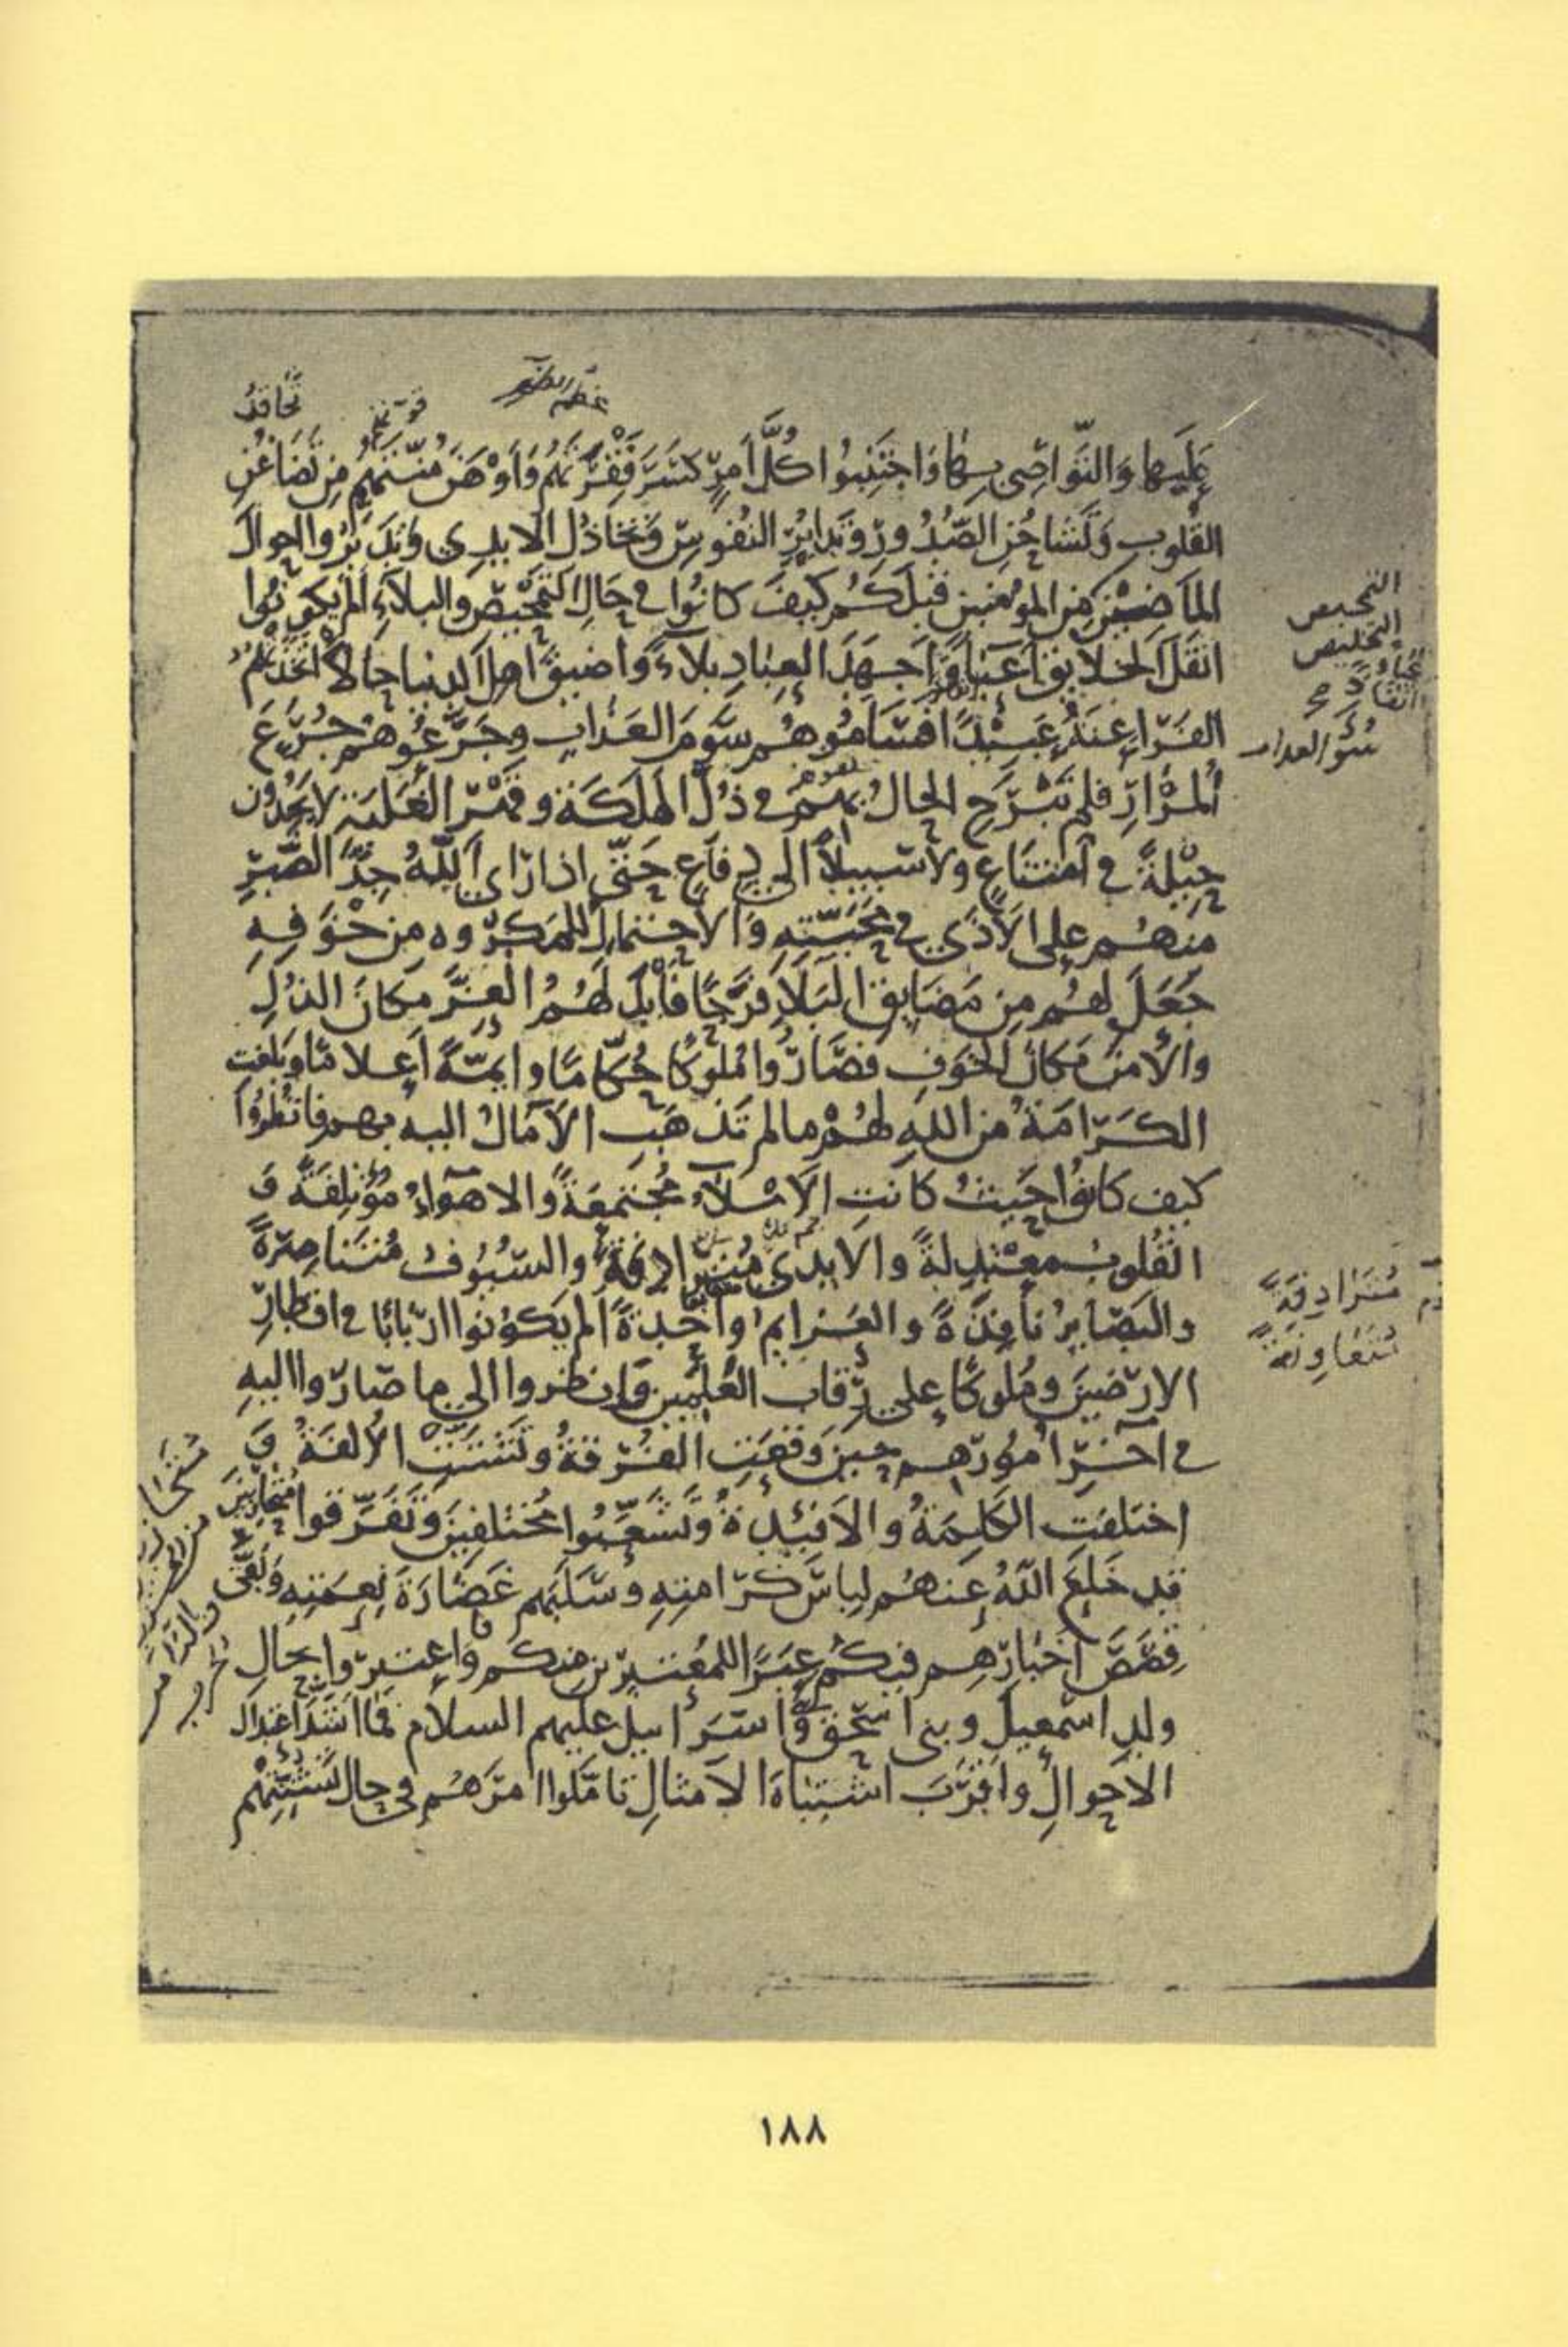 تحاقد
عَلَيها وَالتَّواصِى بِهَا وَاجْتَنِبُوا كُلَّ أَمرٍ كَسَرَ فِقْرَتَهُم وَأَوْهَنَ مُنَّتَهُم مِن تَضَاغُنِ
القُلوبِ وَتَشَاحُنِ الصُّدُورِ وَتَدَابُرِ النُفُوسِ وَتَخَاذُلِ الايدِى وَتَدَبَّرُوا احوالَ
المَاضِينَ مِنَ المؤمنين قَبلَكُم كَيفَ كَانُوا فى حَالِ التَّمْحيصِ والبلآءِ أَلَم يكونُوا
اثقَلَ الخلايقِ أَعبَآءً وَأَجهَدَ العِبَادِ بلآءً وأَضيقَ أهلِ الدنيا حالاً اتَّخَذَتْهُمُ
الفَرَاعِنَةُ عَبِيْدًا فَسَامُوهُم سَوْمَ العَذابِ وجَرَّعُوهُم جُرَعَ
المُرَارِ فلم تَبْرَحِ الحالُ بِهِم فى ذُلِّ الهَلَكَةِ وقَهْرِ الغَلَبَةِ لا يَجدُون
حِيْلةً فى امتنَاعٍ ولا سَبيلاً الى دِفَاعٍ حَتّى اذا رَاى اللّهُ جِدَّ الصَّبرِ
مِنهُم على الأَذَى فى مَحَبَّتِهِ وَالاحتمالَ للمَكرُوهِ مِن خَوفِهِ
جَعَلَ لهُم مِن مَضَايقِ البَلآءِ فَرَجًا فَأَبدَلَهُمُ العِزَّ مكانَ الذُلِ
والأَمنَ مَكانَ الخَوفِ فصَارُوا مُلوكًا حُكّامًا وايمّةً أعلامًا وبَلَغت
الكَرَامَةُ من اللهِ لهُمْ ما لم تَذهَبِ الآمالُ اليه بِهم فانظُرُوا
كَيفَ كانُوا حَيثُ كانتِ الأَمْلآءُ مُجتَمِعَةً والاهوآءُ مُؤتَلِفَةً وَ
القُلوبُ مُعْتَدِلَةً والايدى مُتَرَادِفَةً والسُيُوفُ مُتَنَاصِرَةً
والبَصَايرُ نافِذَةً والعَزايمُ واحِدَةً أَلم يكُونُوا اربَابًا فى اقطارِ
الارَضينَ ومُلوكًا على رِقابِ العٰلَمينَ فانظروا الى ما صَارُوا اليهِ
فى آخرِ أُمُورِهِم حِينَ وَقَعَتِ الفُرقةُ وتَشَتَّتَتِ الأُلفَةُ وَ
اختلفَتِ الكَلِمَةُ والأَفئِدَةُ وَتَشَعَّبُوا مُختلفِينَ وَتَفَرَّقوا مُتَحَازِبينَ
قد خَلَعَ اللّهُ عنهُم لِباسَ كَرَامتِهِ وسَلَبَهم غَضَارَةَ نِعمَتِهِ وبَقّى
قَصَصَ أَخبَارِهِم فيكُم عِبَرًا للمُعتبِرِينَ مِنكم وَاعتبِروا بحَالِ
ولدِ اسمٰعيلَ وبنى اسحٰقَ واسرَآييلَ عليهم السلام فما اشَدَّ اعتدال
الأَحوالِ واقرَبَ اشتِبَاهَ الامثالِ تامَّلُوا امرَهُم فى حالِ تَشَتُّتِهِمْ
التمحيص
التخليص
سُوء العذاب
مُتَرَادِفَةً
مُتَعَاوِنَةً
١٨٨